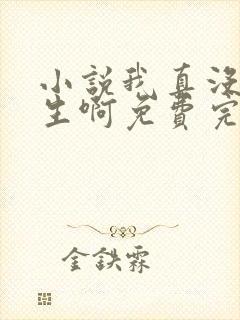 小説我真没
生啊免費完
金鉄霖